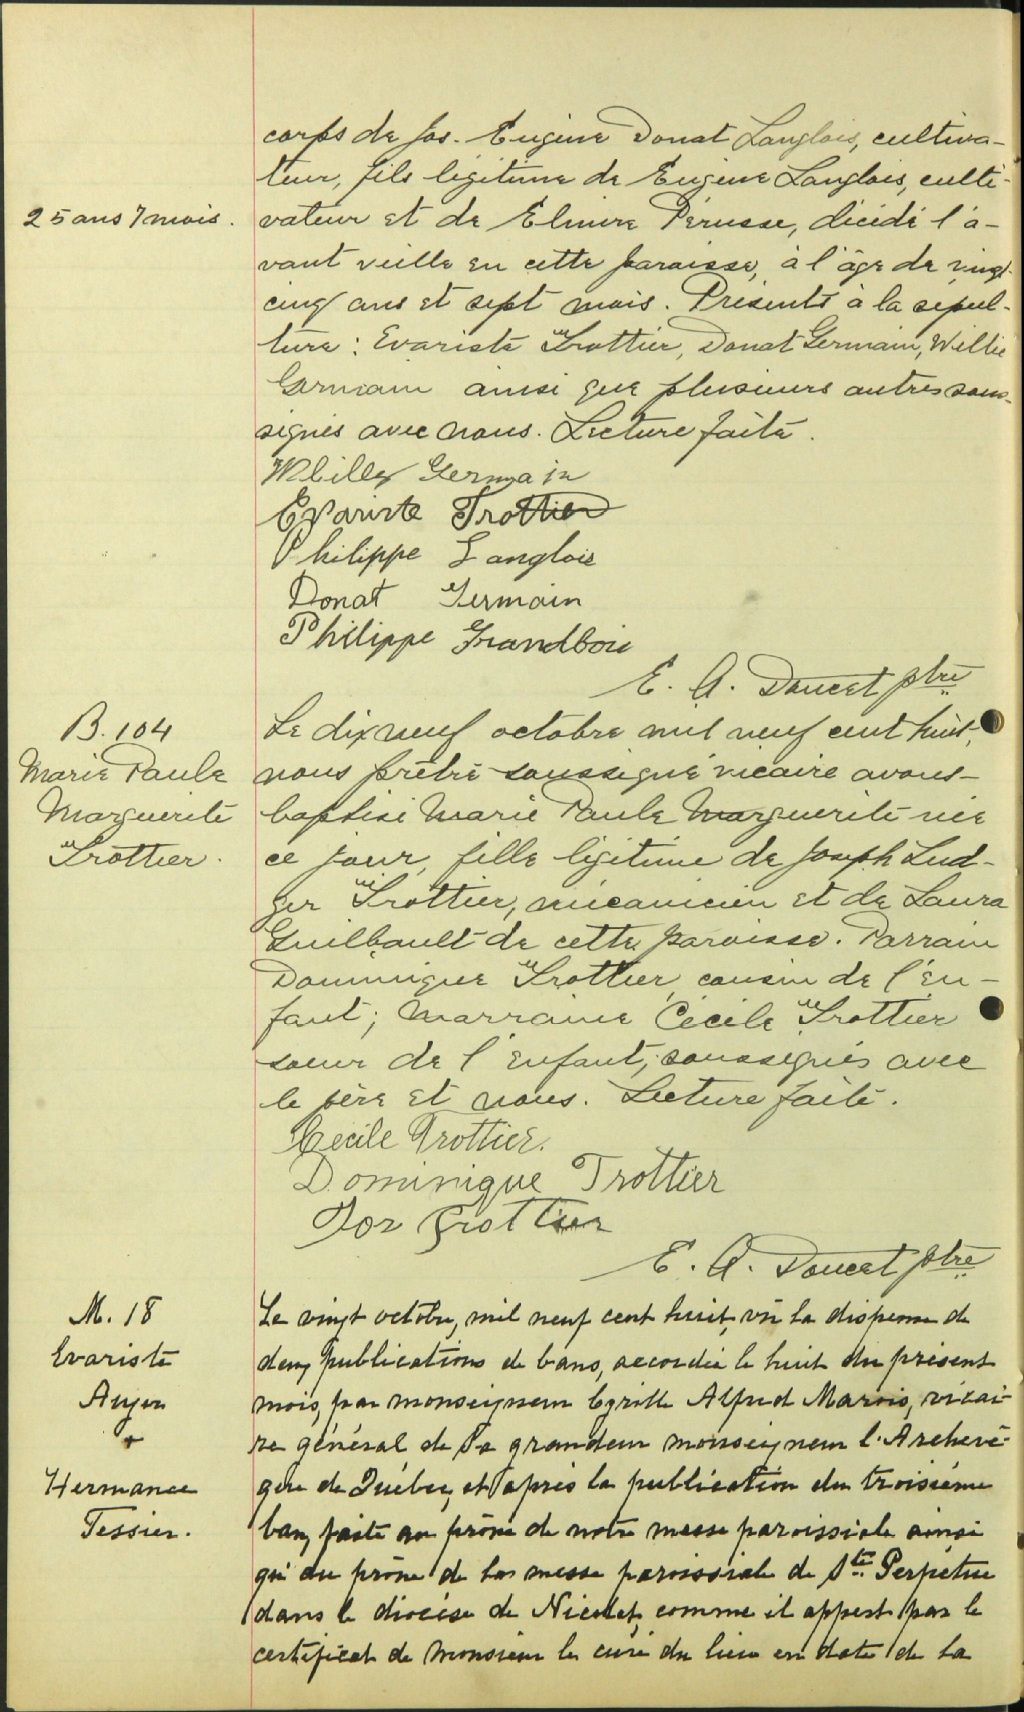 corps de Jos. Eugène Donat Langlois, cultiva-
teur, fils légitime de Eugène Langlois, culti-
25 ans 7 mois.
vateur et de Elmire Pérusse, décédé l'a-
vant veille en cette paroisse, à l'âge de vingt
cinq ans et sept mois. Présents à la sépul-
ture : Evariste Trottier, Donat Germain, Willie
Germain ainsi que plusieurs autres sous-
signés avec nous. Lecture faite.
Germain
Evariste Trottier
Philippe Langlois
Donat Germain
Philippe Grandbois
E. A. Doucet ptre
B. 104
Marie Paule
Marguerite
Trottier.
Le dix neuf octobre mil neuf cent huit,
nous prêtre soussigné vicaire avons
baptisé Marie Paule Marguerite née
ce jour, fille légitime de Joseph Lud-
ger Trottier, mécanicien et de Laura
Guilbault de cette paroisse. Parrain
Dominique Trottier, cousin de l'en-
fant ; marraine Cécile Trottier
soeur de l'enfant, soussignés avec
le père et nous. Lecture faite.
Cécile Trottier.
Dominique Trottier
Jos Trottier
E. A. Doucet ptre
M. 18
Evariste
Auger
+
Hermance
Tessier.
Le vingt octobre, mil neuf cent huit, vu la dispense de
deux publications de bans, accordée le huit du présent
mois, par monseigneur Cyrille Alfred Marois, vicai-
re général de Sa grandeur monseigneur l'Archevê-
que de Québec, et après la publication du troisième
ban, faite au prône de notre messe paroissiale ainsi
qu'au prône de la messe paroissiale de Ste Perpétue
dans le diocèse de Nicolet, comme il appert par le
certificat de monsieur le curé du lieu en date de la